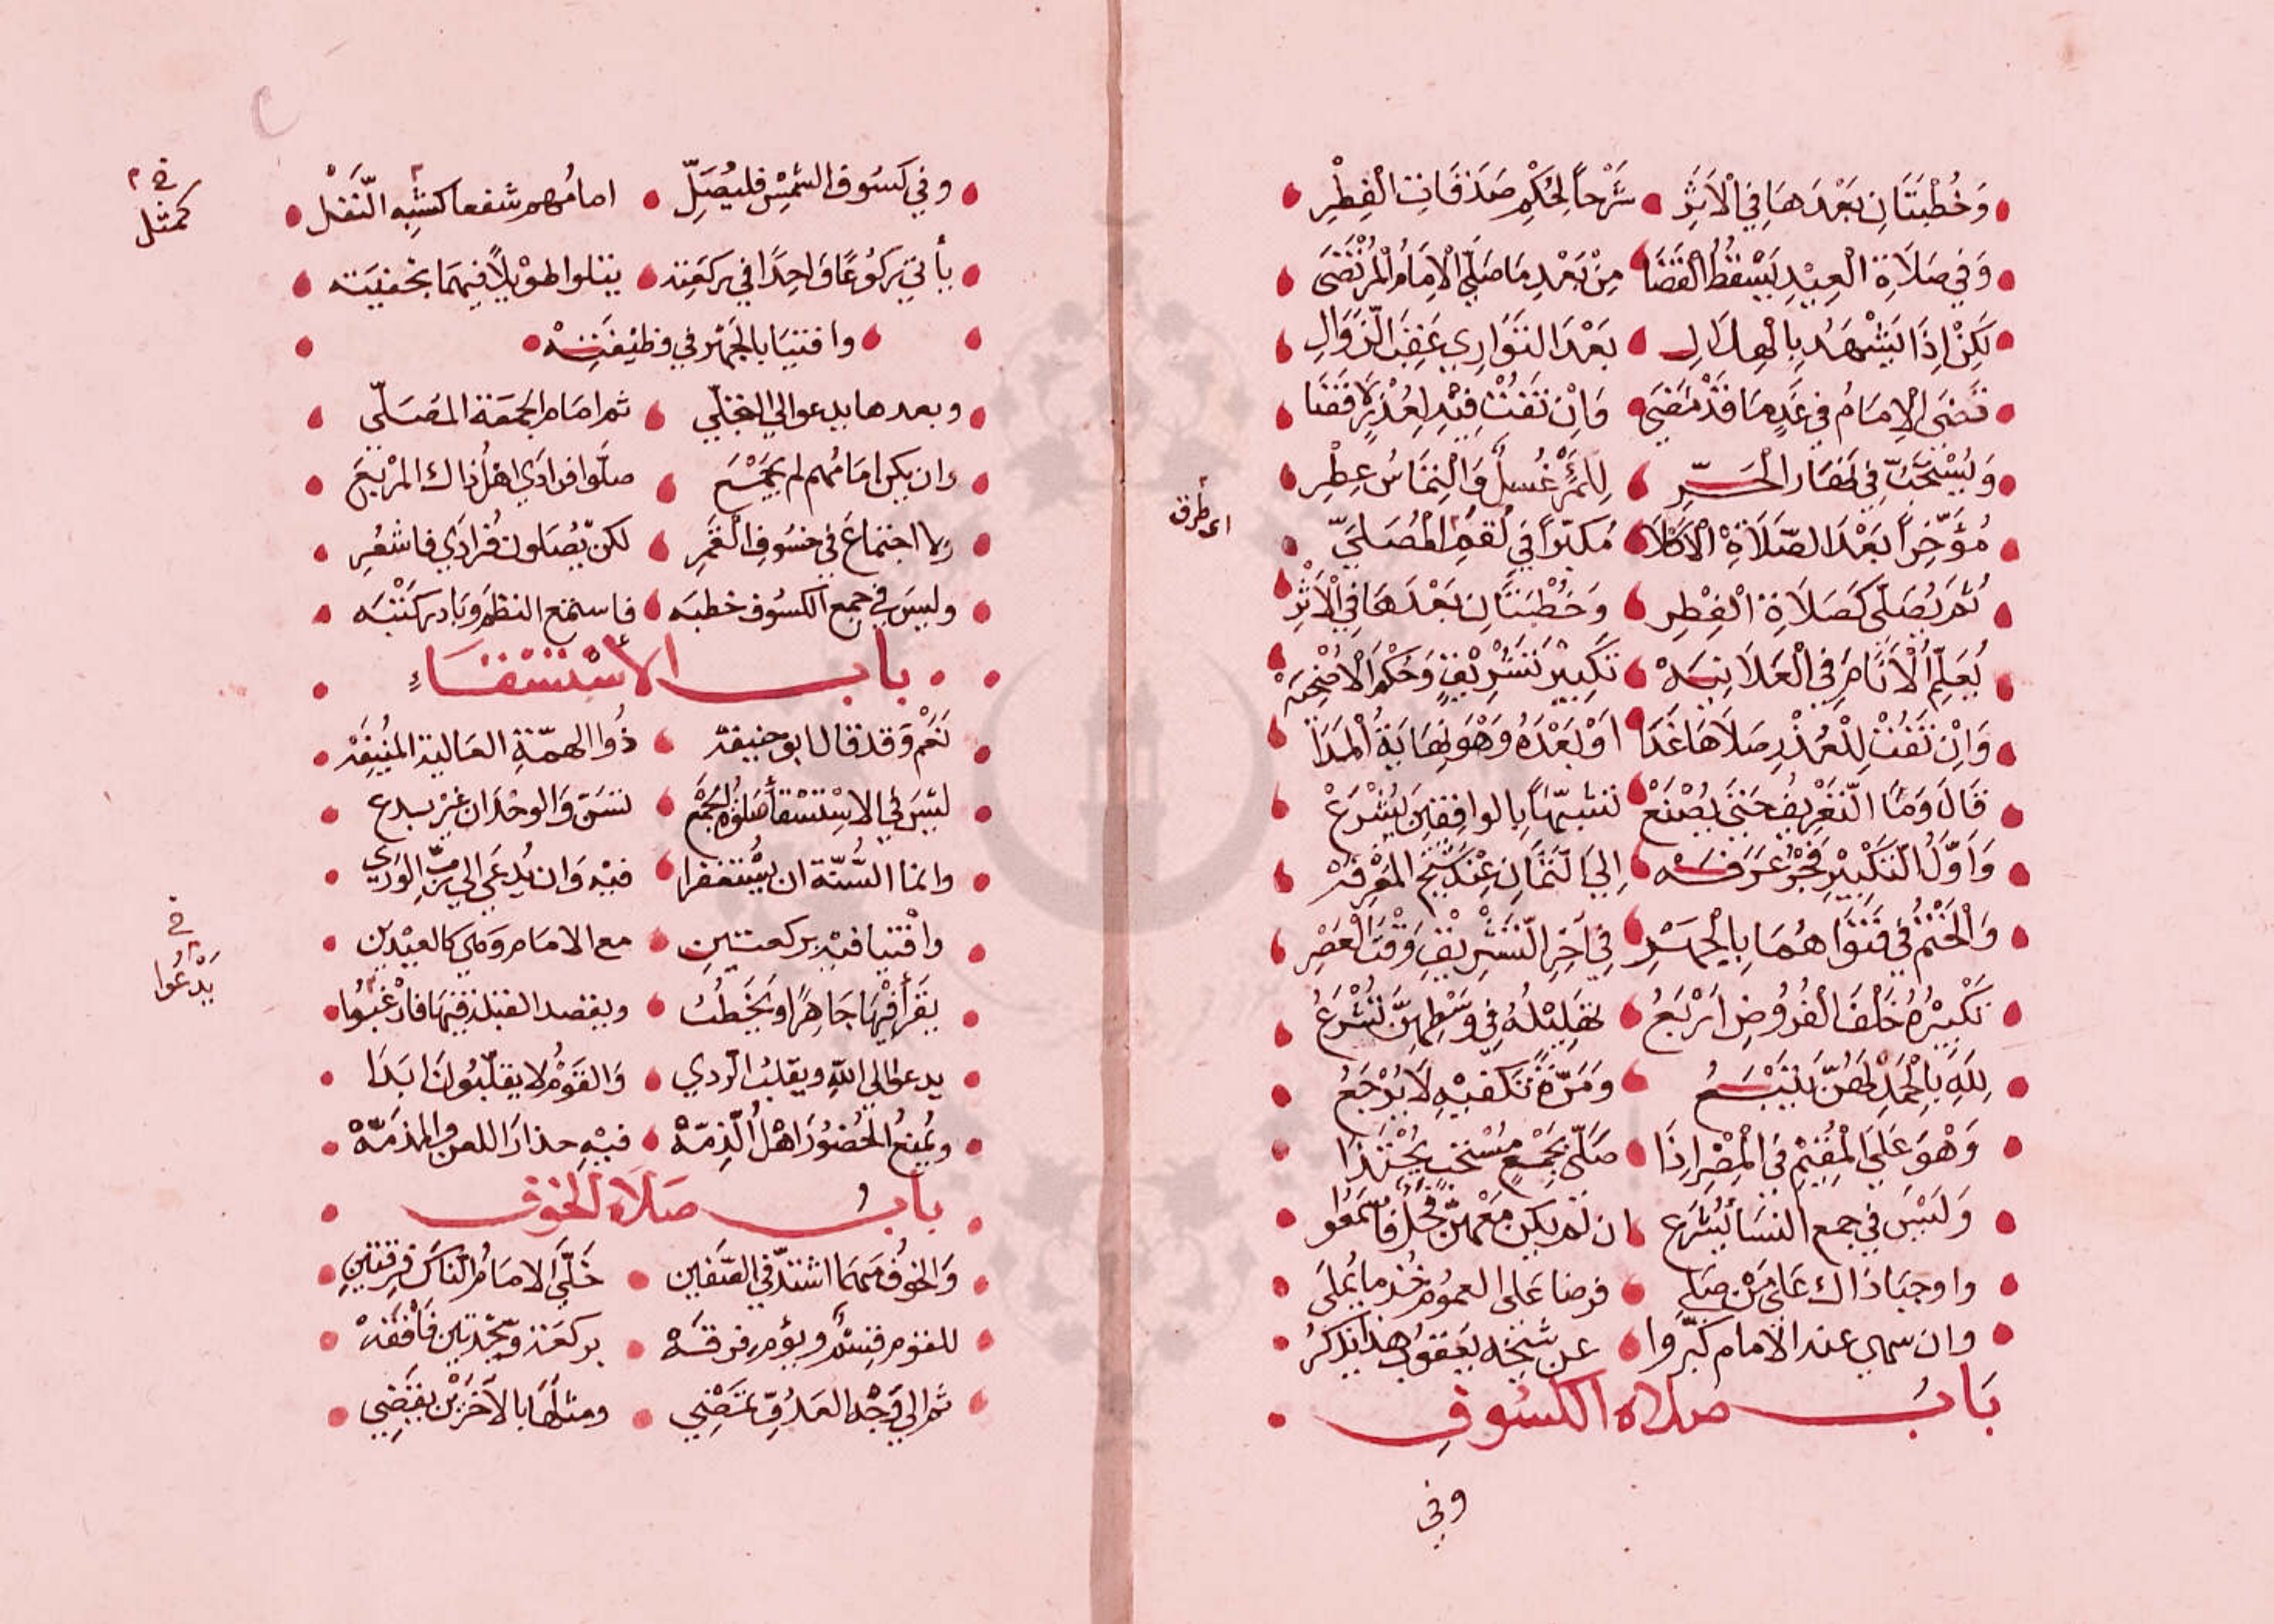 وَخُطْبَتَانِ بَعْدَهَا فِي الْاَثَرِ • شَرْحاً لِحُكْمِ صَدَقَاتِ الْفِطْرِ
وَفِي صَلَاةِ الْعِيْدِ يَسْقُطُ الْقَضَا مِنْ بَعْدِ مَا صَلَّي الْاِمَامُ الْمُرْتَضَى
لَكِنْ اِذَا يَشْهَدُ بِالْهِلَالِ • بَعْدَ التَوَارِي عَقِبَ الزَّوَالِ
قَضَى الْاِمَامُ فِي غَدٍ مَا قَدْ مَضَى وَاِنْ تَفُتْ فِيْهِ لِعُذْرٍ
وَيُسْتَحَبُّ فِي نَهَارِ الْحَرِّ لِلْمَرْءِ غُسْلٌ وَالْتِمَاسُ عِطْرِ
اى طرق
مُؤَخِّراً بَعْدَ الصَّلَاةِ الْاَكْلَا مُكَبِّراً فِي لُقَمِ الْمُصَلَّي
ثُمَّ يُصَلَّى كَصَلَاةِ الْفِطْرِ وَخُطْبَتَانِ بَعْدَهَا فِي الْاَثْرِ
يُعَلِّمُ الْاَنَامَ فِي الْعَلَانِيَهْ تَكْبِيْرَ تَشْرِيْقٍ وَحُكْمَ الْاُضْحِيَهْ
وَاِنْ تَفُتْ لِلْعُذْرِ صَلَاهَا غَدَا اَوْ بَعْدَهُ وَهْوَ نِهَايَةُ الْمَدَا
قَالَ وَمَا التَّعْرِيفُ حَتَى يُصْنَعْ تَشَبُّهاً بِالوَاقِفِيْنَ يُشْرَعْ
وَاَوَّلُ التَكْبِيْرِ فَجْرُ عَرَفَهْ اِلَى ثَمَانٍ عِنْدَ شَيْخِ المَعْرِفَهْ
وَالْخَتْمُ فِي فَتْوَاهُمَا بِالْجَهْرِ فِي آخِرِ التَّشْرِيْقِ وَقْتَ الْعَصْرِ
تَكْبِيْرُهُ خَلْفَ الْفُرُوْضِ اَرْبَعُ تَهْلِيْلُهُ فِي وَسْطِهِنَّ يُشْرَعُ
لِلَّهِ بِالْحَمْدِ لَهُنَّ يَتْبَعُ وَمَرَّةً تَكْفِيْهِ لَا يُرْجَعُ
وَهْوَ عَلَى الْمُقِيْمِ فِي الْمِصْرِ اِذَا صَلَّى بِجَمْعٍ مُسْتَحَبٍّ يُحْتَذَا
وَلَيْسَ فِي جمع النسَا يُشْرَعُ ان لَمْ يكن مَعْهُنَّ فَحْلٌ فَاسْمَعُوا
واوجبَا ذَاك عَلَى مَنْ صَلي فرضا عَلى العمُوْم خُذ ما يُملَى
وان سهى عند الامام كبّروا عن شيخه يَعْقُوبَ هذا يذكرُ
بَابُ صلاه الكسُوفِ
وفي
وفي كسُوف الشمْسِ فليُصَلِّ • امامُهم شفعا كشبْه النَّفَل
في كمثل
يأتي بركُوْعًا وَاحِدًا في ركعَته يتلوا طوْيلاً فيهمَا بخفيَته
وافتيَا بالجَهْر في وظيْفَتِهْ
وبعدها يدعو الي التجَلّي ثم امَام الجُمعَة المُصَلّي
وان يكن امَامُهم لم يَجْمَع صلّوا فرادَي اهْلُ ذاك المرْبَع
ولا اجتماعَ في خسُوفِ القَمَرِ لكن يُصَلون فُرادَي فاشعُرِ
وليسَ في جمع الكسُوف خطبَه فاستمَع النظمَ وبَادر كَتْبَه
بابُ الاسْتسْقَاء
نَعَمْ وَقد قال ابو حنيفَة ذُوا الهمّةِ العَالية المُنِيْفَة
ليْسَ في الاسْتسْقا صَلوةُ الجَمْع تسَنّ وَالوحْدَان غيْر بدع
وانما السُّنّة ان يسْتغفرا فيْه وَان يُدعَى الي ربّ الوَرَي
وافْتيا فيْه بركعتين • مع الامَام وَهي كالعيْدين
يَقرَأ فيْهَا جَاهرًا ويَخْطُبُ • ويقصد القبلة فيْهَا فارْغبُوا
في يَدْعُوا
يدعوا الي الله ويقلبُ الرّدي • وَالقَوْمُ لا يقلّبُونَ ابَدَا
ويُمنعُ الحُضوْرَ اهْلُ الذِّمّهْ • فيْهِ حذارَ اللعن والمذمّهْ
بابُ صَلاَة الخوف
وَالخوْفُ مَهمَا اشتدّ في الصَّفين • خَلَّي الامَامُ النَّاسَ فِرقتَينِ
للقوْم قِسْمٌ ويؤم فرقَهْ • بركعَة وسَجْدتَين
ثم الي وَجْه العَدُوّ تَمْضِي • ومثلَهَا بالآخَرَيْن يقْضِي